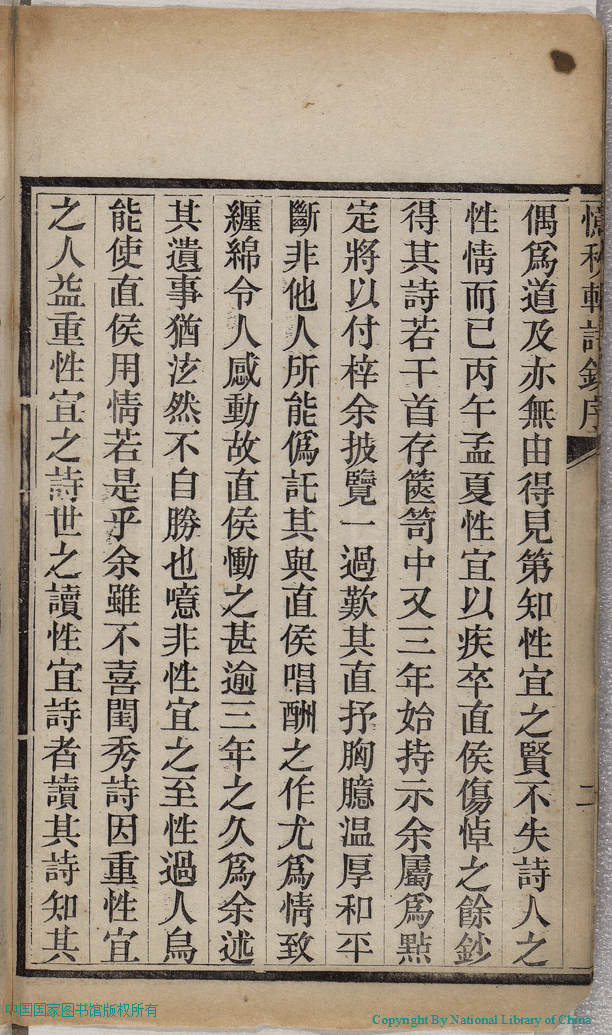 憶秋軒詩鈔序
二
偶爲道及亦無由得見第知性宜之賢不失詩人之
性情而已丙午孟夏性宜以疾卒直侯傷悼之餘鈔
得其詩若干首存篋笥中又三年始持示余屬爲㸃
定將以付梓余披覽一過歎其直抒胸臆温厚和平
斷非他人所能僞託其與直侯唱酬之作尤爲情致
纏綿令人感動故直侯慟之甚逾三年之久爲余述
其遺事猶泫然不自勝也噫非性宜之至性過人烏
能使直侯用情若是乎余雖不喜閨秀詩因重性宜
之人益重性宜之詩世之讀性宜詩者讀其詩知其
中国国家图书馆版权所有
Copyright By National Library of China